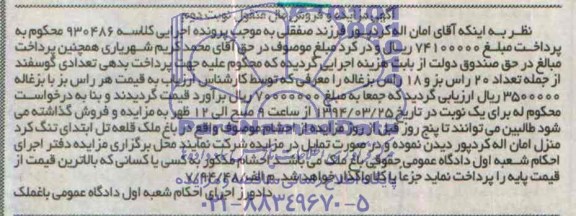 آگهی مزایده و فروش مال منقول نوبت دوم
نظر به اینکه آقای امان اله کردپور فرزند صفقلی به موجب پرونده اجرایی کلاسه ۹۳۰۴۸۶ محکوم به
پرداخت مبلغ ۷۴۱۰۰۰۰۰ ریال و در کرد مبلغ موصوف در حق آقای محمد کریم شهریاری همچنین پرداخت
مبالغ در حق صندوق دولت از بابت هزینه اجرایی گردیده که محکوم علیه جهت پرداخت بدهی تعدادی گوسفند
از جمله تعداد ۲۰ راس بز و ۱۸ راس بزغاله را معرفی که توسط کارشناس ارزیاب به قیمت هر راس بز با بزغاله
۳۵۰۰۰۰۰ ریال ارزیابی گردید که جمعا به مبلغ ریال برآورد قیمت گردیدند و بنا به درخواست
محکوم له برای یک نوبت در تاریخ ۱۳۹۴/۰۳/۲۵ از ساعت ۹ صبح الی ۱۲ ظهر به مزایده و فروش گذاشته می
شود طالبین می توانند تا پنج روز قبل از روز مزایده از احشام موصوف واقع در باغ ملک قلعه تل ابتدای تنگ کرد
منزل امان اله کردپور دیدن نموده و در صورت تمایل در مزایده شرکت نمایند محل برگزاری مزایده دفتر اجرای
احکام شعبه اول دادگاه عمومی حقوقی باغ ملک می باشد احشام مذکور به کسی یا کسانی که بالاترین قیمت از
قیمت پایه را پرداخت نماید جزعا یا کلا واگذار خواهد شد. م الف ۷/۹۴/۴۸
دادورز اجرای احکام شعبه اول دادگاه عمومی باغملک
۰۲۱-۸۸۳۴۹۶۷۰-۵